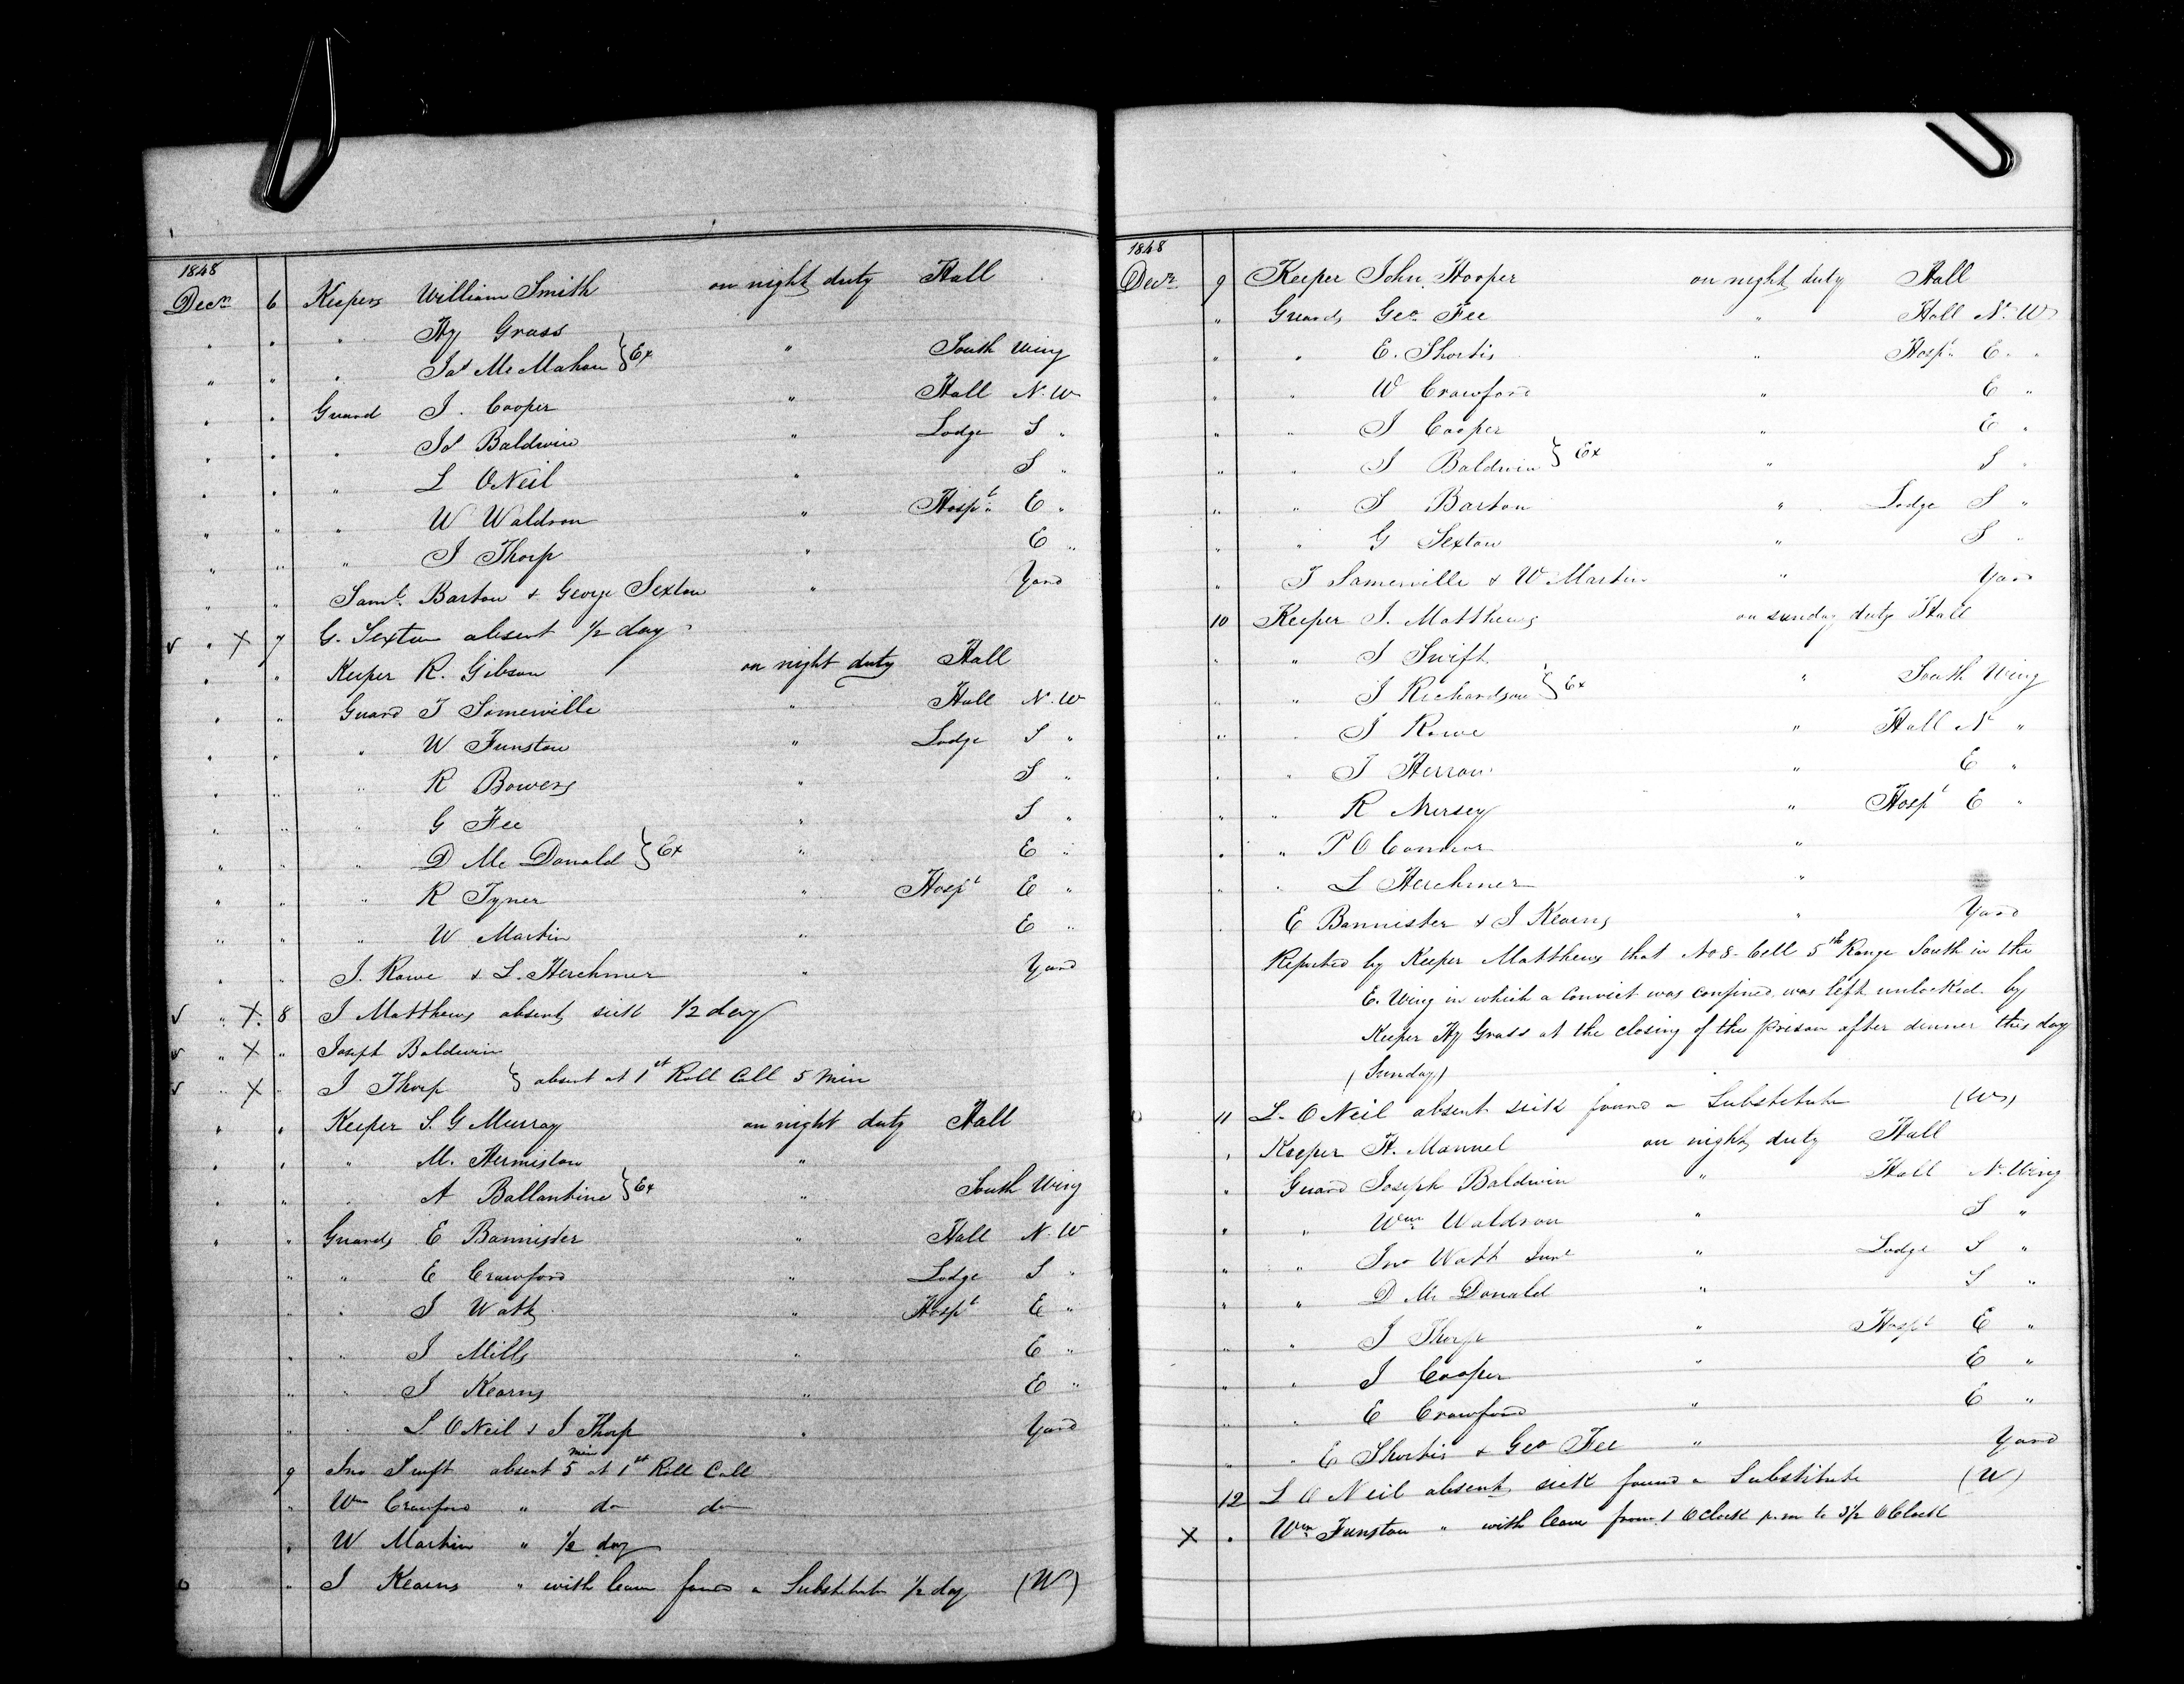 1848
Decr 6 Keepers William Smith on night duty Hall
" " " Hy Grass
" " " Jas McMahon } Ex " South Wing
" " Guard J. Cooper " Hall N. W
" " " Js Baldwin " Lodge S "
" " " L ONeil " S "
" " " W Waldron " Hospt E "
" " " J Thorp " E "
" " Saml Barton & George Sexton " Yard
√ " X 7 G. Sexton absent 1/2 day
" " Keeper R. Gibson on night duty Hall
" " Guard T Somerville " Hall N. W
" " " W Funston " Lodge S "
" " " R Bowers " S "
" " " G Fee " S "
" " " D Mc Donald } Ex " E "
" " " R Tyner " Hospt E "
" " " W Martin " E "
" " J. Rowe & L. Herchmer " Yard
√ " X 8 J Matthews absent sick 1/2 day
√ " X " Joseph Baldwin
√ " X " J Thorp } absent at 1st Roll Call 5 Min
" " Keeper S. G Murray on night duty Hall
" " " M. Hermiston "
" " " A Ballantine } Ex " South Wing
" " Guards E Bannister " Hall N. W
" " E Crawford " Lodge S "
" " J Watt " Hospt E "
" " J Mills " E "
" " J Kearns " E "
" " L ONeil & J Thorp " Yard
9 Jno Swift absent 5 min at 1st Roll Call
" Wm Crawford " do do
" W Martin " 1/2 day
o " J Kearns " with leave found a Substitute 1/2 day (W)
1848
Decr 9 Keeper John Hooper on night duty Hall
" Guards Geo Fee " Hall N. W
" " E. Shortis " Hospt E. "
" " W Crawford " E "
" " J Cooper " E "
" " J Baldwin } Ex " S "
" " S Barton " Lodge S "
" " G Sexton " S "
" T Somerville & W Martin " Yard
10 Keeper J. Matthews on sunday duty Hall
" " J Swift
" " J Richardson } Ex " South Wing
" " J Rowe " Hall N "
" " J Herron " E "
" " R Mersey " Hospt E "
" " P O Connor "
" " L Herchmer "
" E Bannister & J Kearns " Yard
Reported by Keeper Matthews that No 8. Cell 5th Range South in the
E. Wing in which a Convict was confined was left unlocked by
Keeper Hy Grass at the closing of the prison after dinner this day
(Sunday)
o 11 L. O Neil absent sick found a Substitute (W)
" Keeper H. Manuel on night duty Hall
" Guard Joseph Baldwin " Hall N. Wing
" " Wm Waldron " S "
" " Jno Watt Junr " Lodge S "
" " D Mc Donald " S "
" " J Thorp " Hospt E "
" " J Cooper " E "
" " E Crawford " E "
" " E Shortis & Geo Fee " Yard
12 L O Neil absent sick found a Substitute (W)
X " Wm Funston " with leave from 1 OClock p.m to 3 1/2 OClock